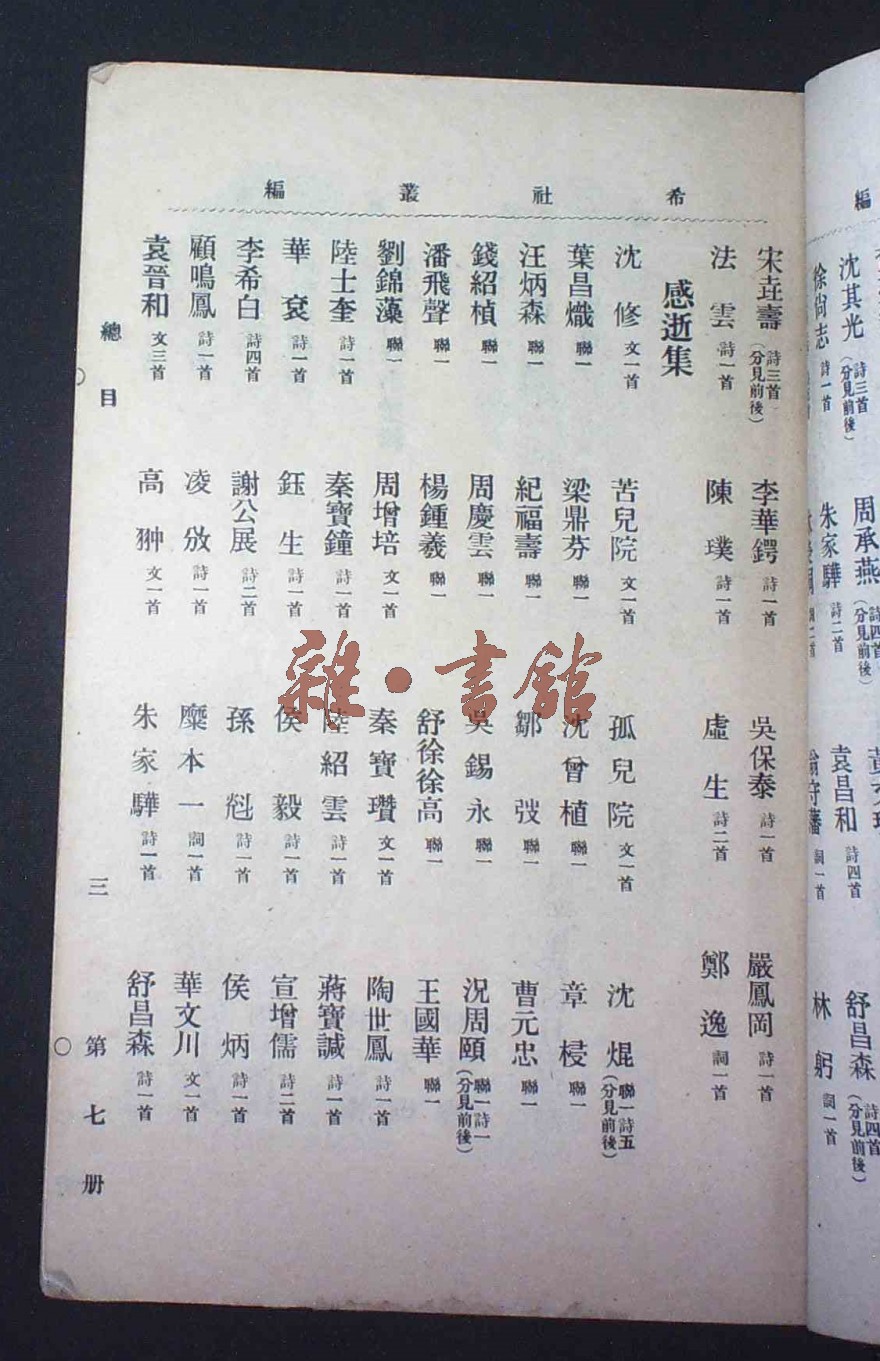 希社叢編
宋壵壽 詩三首(分見前後) 李華鍔 詩一首 吳保泰 詩一首 嚴鳳岡 詩一首
法雲 詩一首 陳璞 詩一首 虛生 詩二首 鄭逸 詞一首
感逝集
沈修 文一首 苦兒院 文一首 孤兒院 文一首 沈焜 聯一詩五(分見前後)
葉昌熾 聯一 梁鼎芬 聯一 沈曾植 聯一 章梫 聯一
汪炳森 聯一 紀福壽 聯一 鄒弢 聯一 曹元忠 聯一
錢紹楨 聯一 周慶雲 聯一 吳錫永 聯一 況周頤 聯一詩一(分見前後)
潘飛聲 聯一 楊鍾羲 聯一 舒徐徐高 聯一 王國華 聯一
劉錦藻 聯一 周增培 文一首 秦寶瓚 文一首 陶世鳳 詩一首
陸士奎 詩一首 秦寶鐘 詩一首 陸紹雲 詩一首 蔣寶諴 詩一首
華袞 詩一首 鈺生 詩一首 侯毅 詩一首 宣增儒 詩二首
李希白 詩四首 謝公展 詩二首 孫 詩一首 侯炳 詩一首
顧鳴鳳 詩一首 凌攽 詩一首 糜本一 詞一首 華文川 文一首
袁晉和 文三首 高翀 文一首 朱家驊 詩一首 舒昌森 詩一首
總目 三 第七册
雜·書館
編
周承燕 詩四首(分見前後) 舒昌森 詩四首(分見前後)
沈其光 詩三首(分見前後) 朱家驊 詩二首 袁昌和 詩四首 林躬 詞一首
徐尚志 詩一首 翁守藩 詞一首